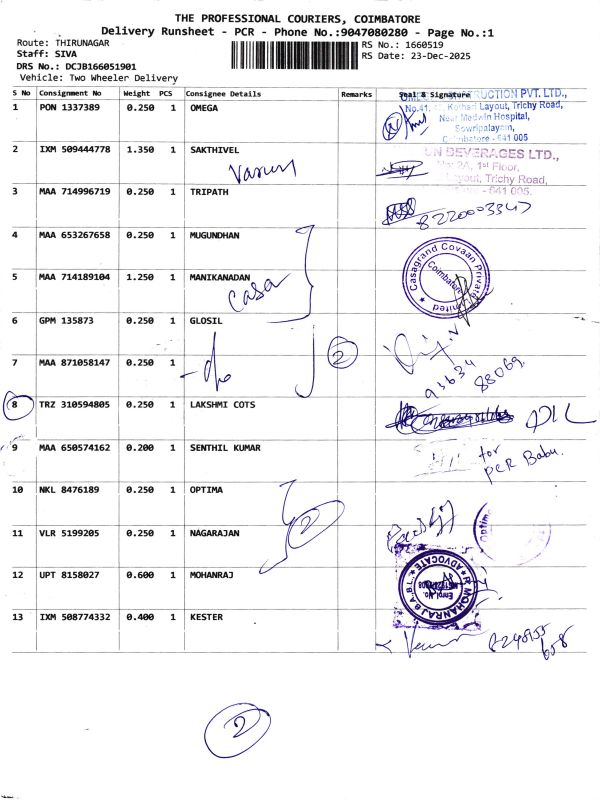 THE PROFESSIONAL COURIERS, COIMBATORE
Delivery Runsheet - PCR - Phone No.:9047080280 - Page No.:1
Route: THIRUNAGAR
Staff: SIVA
DRS No.: DCJB166051901
Vehicle: Two Wheeler Delivery
RS No.: 1660519
RS Date: 23-Dec-2025
S No Consignment No Weight PCS Consignee Details Remarks Seal & Signature
1 PON 1337389 0.250 1 OMEGA
RUCTION PVT. LTD.,
No.41, Kothari Layout, Trichy Road,
Near Medwin Hospital,
Sowripalayam,
Coimbatore - 641 005
2 IXM 509444778 1.350 1 SAKTHIVEL
Varun
BEVERAGES LTD.,
2A, 1st Floor,
Layout, Trichy Road,
- 641 005.
3 MAA 714996719 0.250 1 TRIPATH
8220003347
4 MAA 653267658 0.250 1 MUGUNDHAN
Casagrand Covaan Private Limited
Coimbatore
5 MAA 714189104 1.250 1 MANIKANADAN
Casa
6 GPM 135873 0.250 1 GLOSIL
2
7 MAA 871058147 0.250 1
-do
93634
88069
8 TRZ 310594805 0.250 1 LAKSHMI COTS
9 MAA 650574162 0.200 1 SENTHIL KUMAR
for
PCR Babu.
10 NKL 8476189 0.250 1 OPTIMA
2
Optima
11 VLR 5199205 0.250 1 NAGARAJAN
12 UPT 8158027 0.600 1 MOHANRAJ
R. MOHANRAJ B.A.B.L.
ADVOCATE
Enrol. No.
13 IXM 508774332 0.400 1 KESTER
8248955
658
2